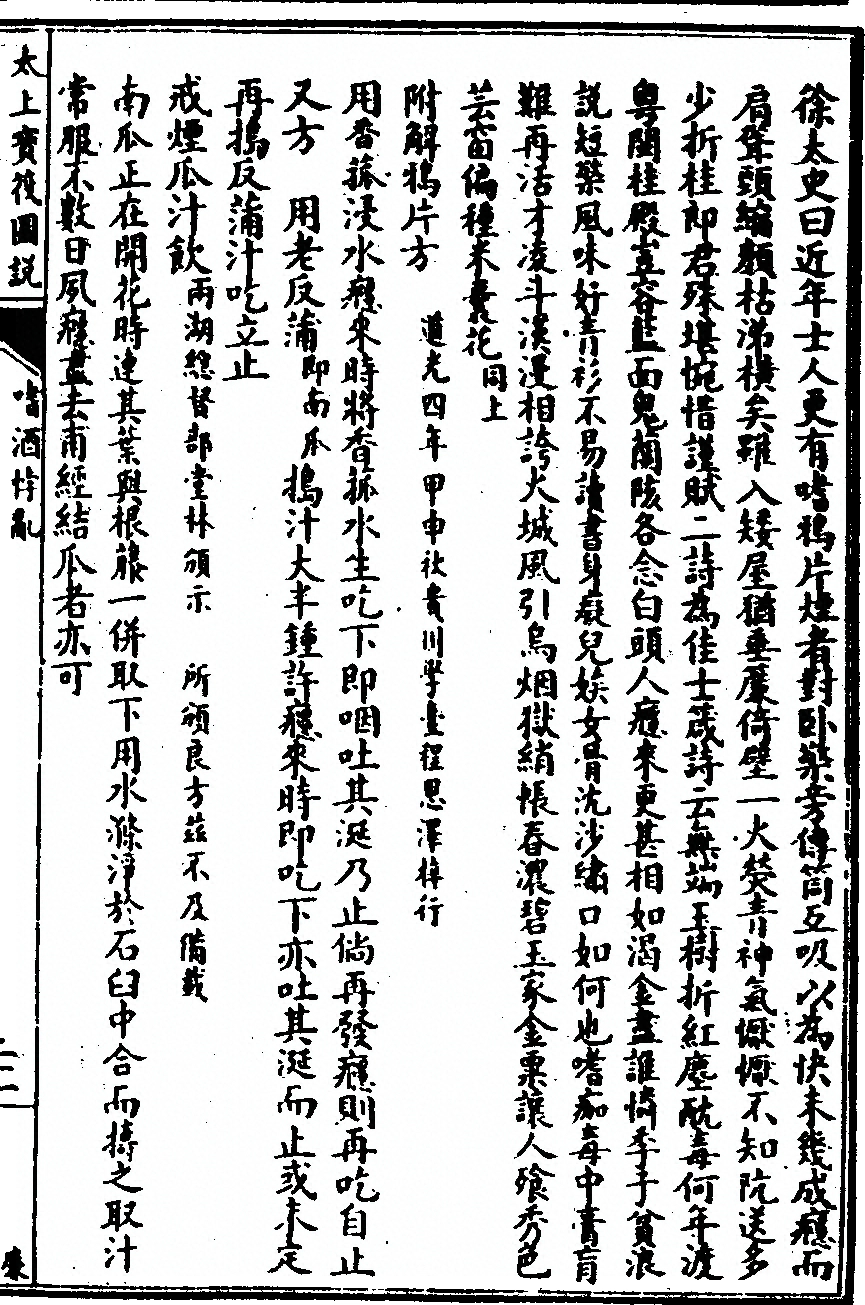 徐太史曰近年士人更有嗜鴉片煙者對卧榮旁傳筒互吸以為快未幾成癮而
肩聳頭縮顏枯涕橫矣雖入矮屋猶垂簾倚壁一火熒青神氣懨懨不知阬送多
少折桂郎君殊堪惋惜謹賦二詩為佳士箴詩云無端玉樹折紅塵酖毒何年渡
粵關桂殿豈容藍面鬼蘭陔各念白頭人癮來更甚相如渴金盡誰憐季子貧浪
說短榮風味好青衫不易讀書身癡兒娭女骨沈沙繡口如何也嗜痂毒中膏肓
難再活才凌斗漢漫相誇火城風引烏烟獄綃帳春濃碧玉家金粟讓人飱秀色
芸窗偏種米囊花同上
附解鴉片方 道光四年甲申秋貴州學臺程恩澤梓行
用香蓀浸水癮來時將香蓀水生吃下即咽吐其涎乃止倘再發癮則再吃自止
又方 用老反蒲即南瓜搗汁大半鍾許癮來時即吃下亦吐其涎而止或未定
再搗反蒲汁吃立止
戒煙瓜汁飲兩湖總督部堂林頒示 所頒良方茲不及備載
南瓜正在開花時連其葉與根藤一併取下用水滌淨於石臼中合而擣之取汁
常服不數日夙癮盡去甫經結瓜者亦可
太上寶筏圖説
嗜酒悖亂
二二